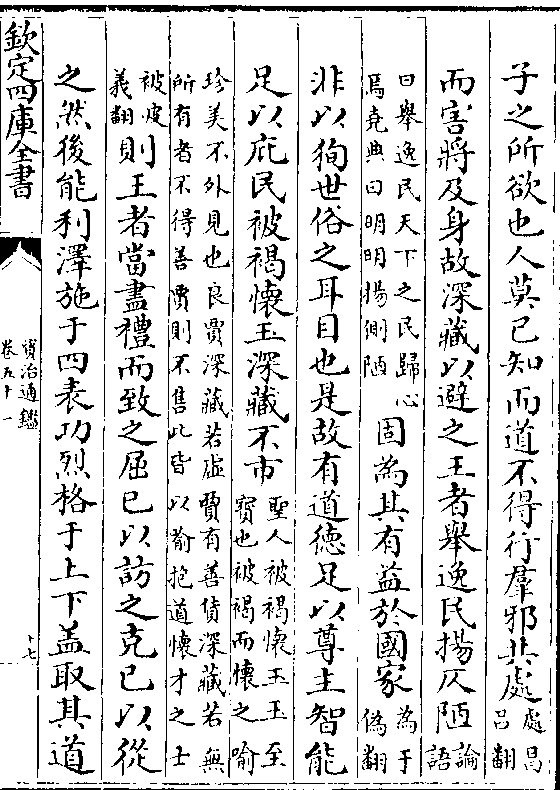 子之所欲也人莫已知而道不得行羣邪共處處昌呂翻
而害將及身故深藏以避之王者舉逸民揚仄陋論語
曰舉逸民天下之民歸心焉堯典曰明明揚側陋固為其有益於國家為于偽翻
非以狥世俗之耳目也是故有道德足以尊主智能
足以庇民被褐懷玉深藏不市聖人被褐懷玉玉至寶也被褐而懷之喻
珍美不外見也良賈深藏若虛賈有善貨深藏若無所有者不得善賈則不售此皆以喻抱道懷才之士
被皮義翻則王者當盡禮而致之屈已以訪之克已以從
之然後能利澤施于四表功烈格于上下盖取其道
欽定四庫全書
資治通鑑
卷五十一
十七